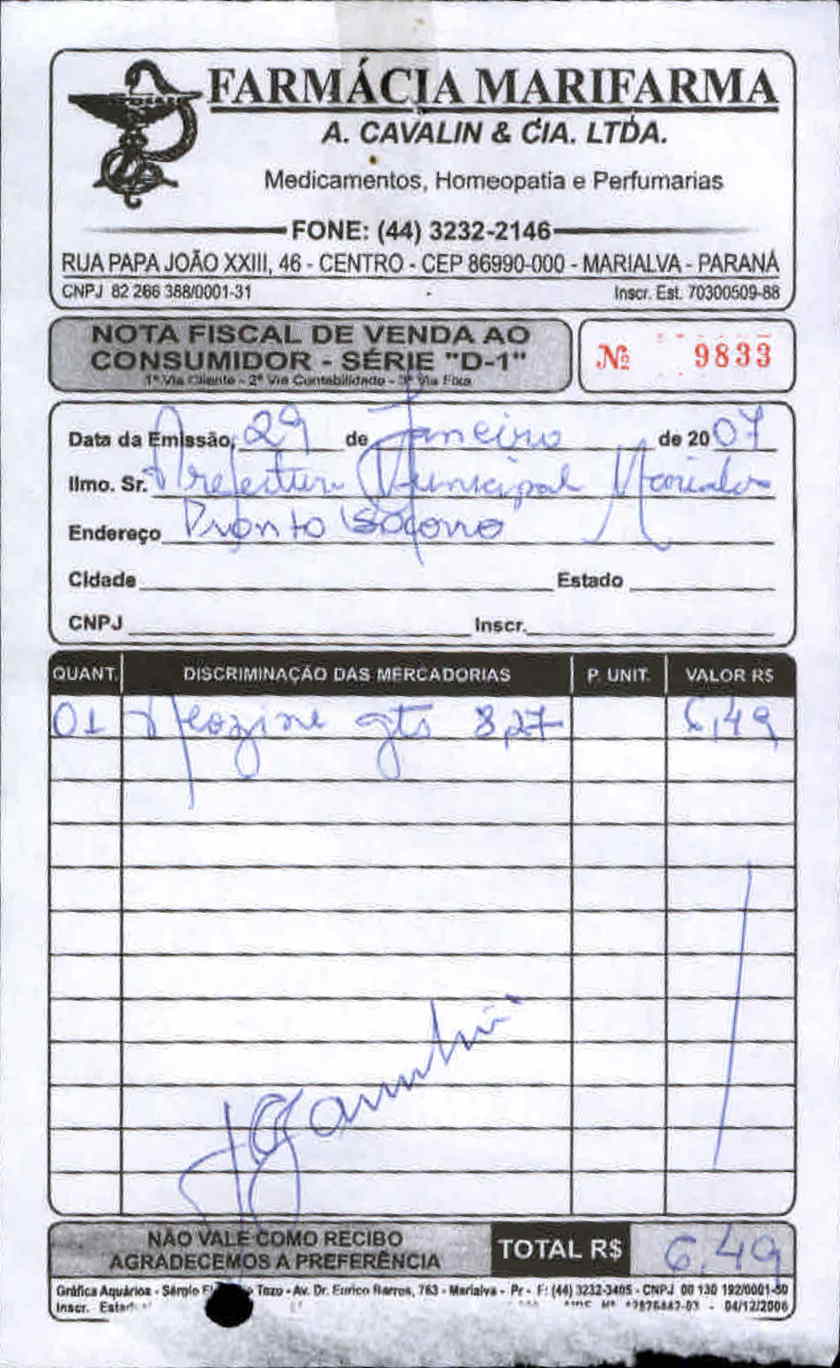 FARMÁCIA MARIFARMA
A. CAVALIN & CIA. LTDA.
Medicamentos, Homeopatia e Perfumarias
FONE: (44) 3232-2146
RUA PAPA JOÃO XXIII, 46 - CENTRO - CEP 86990-000 - MARIALVA - PARANÁ
CNPJ 82 266 388/0001-31 Inscr. Est. 70300509-88
NOTA FISCAL DE VENDA AO
CONSUMIDOR - SÉRIE "D-1"
1ª Via Cliente - 2ª Via Contabilidade - 3ª Via Fixa
Nº 9833
Data da Emissão, 29 de Janeiro de 2007
Ilmo. Sr. Prefeitura Municipal Marialva
Endereço Pronto Socorro
Cidade Estado
CNPJ Inscr.
QUANT. DISCRIMINAÇÃO DAS MERCADORIAS P. UNIT. VALOR R$
01 Neozine gts 8,27 6,49
NÃO VALE COMO RECIBO
AGRADECEMOS A PREFERÊNCIA
TOTAL R$ 6,49
Gráfica Aquários - Sérgio Tozo - Av. Dr. Eurico Barros, 763 - Marialva - Pr - F: (44) 3232-3405 - CNPJ 00 130 192/0001-50
Inscr. 04/12/2006